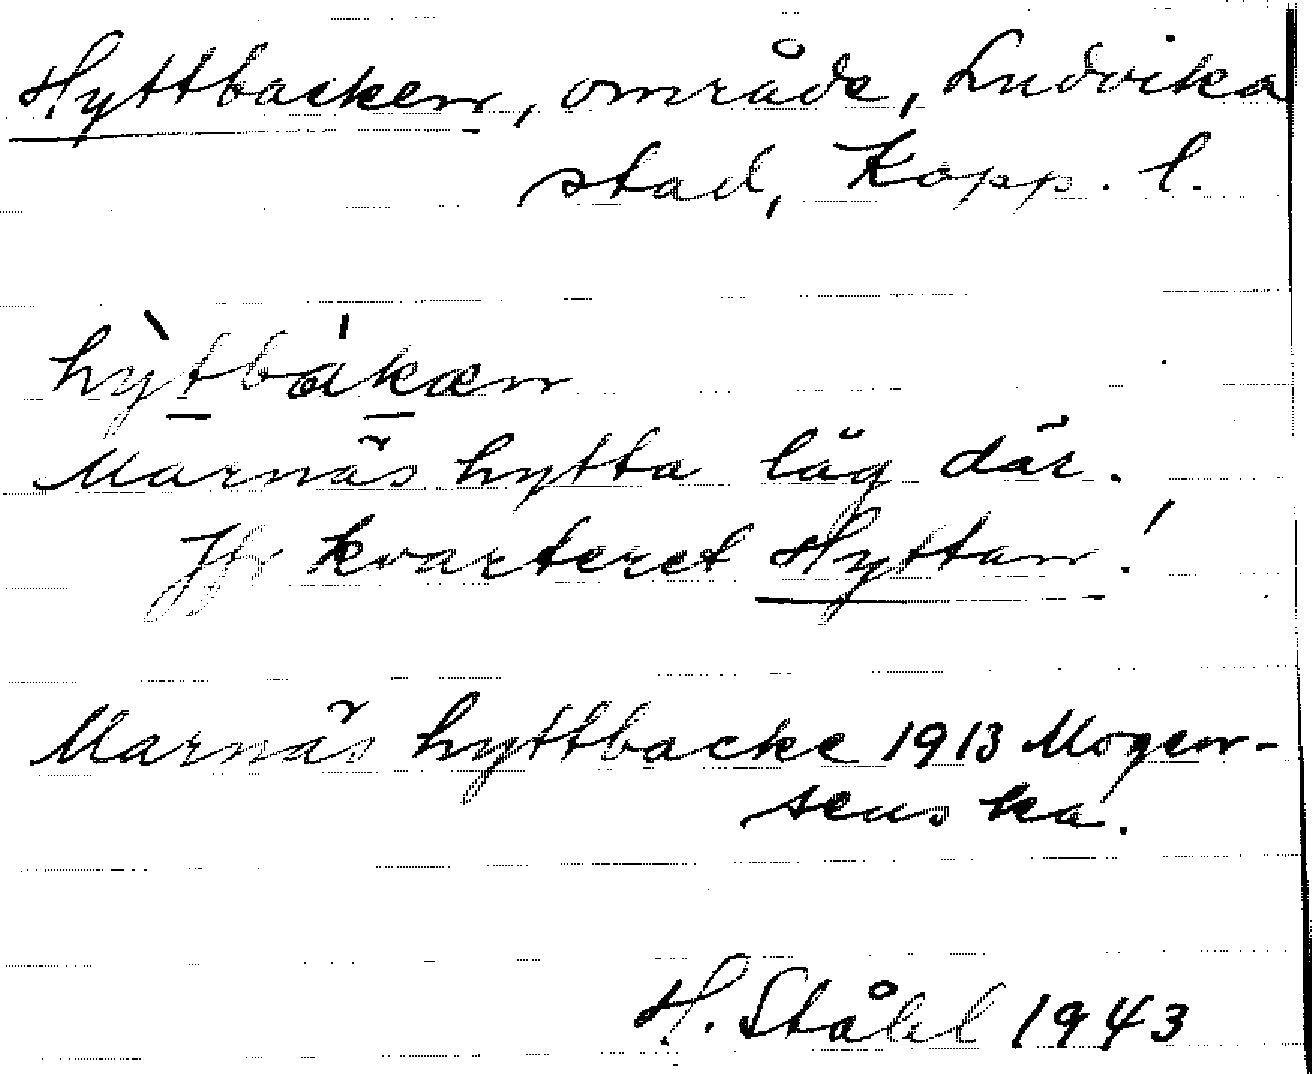 Hyttbacken, område, Ludvika
stad, Kopp. l.
hỳtbákæn
Marnäs hytta låg där.
Jfr kvarteret Hyttan!
Marnäs hyttbacke 1913 Mogen-
senska.
H. Ståhl 1943